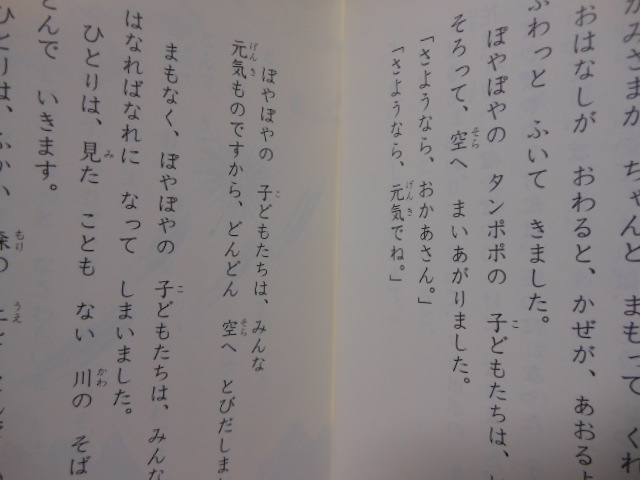 かみさまが ちゃんと まもって くれ
おはなしが おわると、かぜが、あおるよ
ふわっと ふいて きました。
ぽやぽやの タンポポの 子どもたちは、
そろって、空へ まいあがりました。
「さようなら、おかあさん。」
「さようなら、元気でね。」
ぽやぽやの 子どもたちは、みんな
元気ものですから、どんどん 空へ とびだしまし
まもなく、ぽやぽやの 子どもたちは、みんな
はなればなれに なって しまいました。
ひとりは、見た ことも ない 川の そば
とんで いきます。
ひとりは、ふかい 森の 上を